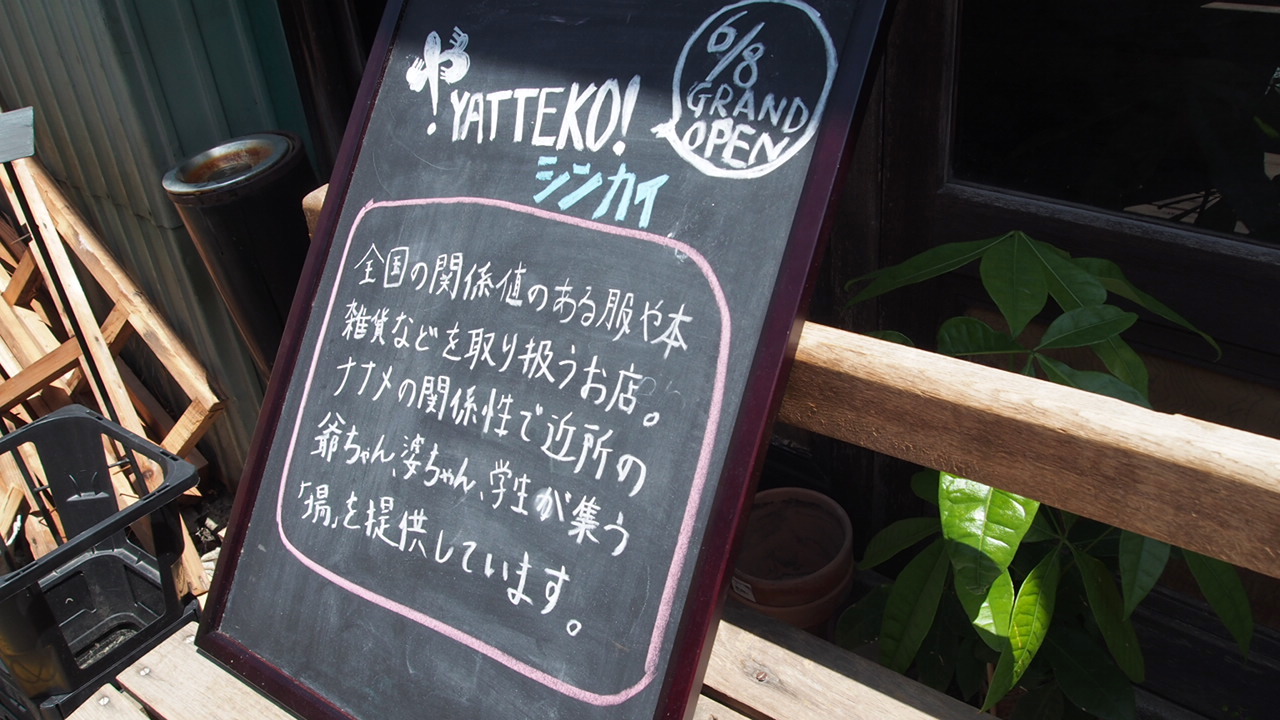 や
YATTEKO!
シンカイ
6/8
GRAND
OPEN
全国の関係値のある服や本
雑貨などを取り扱うお店。
ナナメの関係性で近所の
爺ちゃん、婆ちゃん、学生が集う
「場」を提供しています。